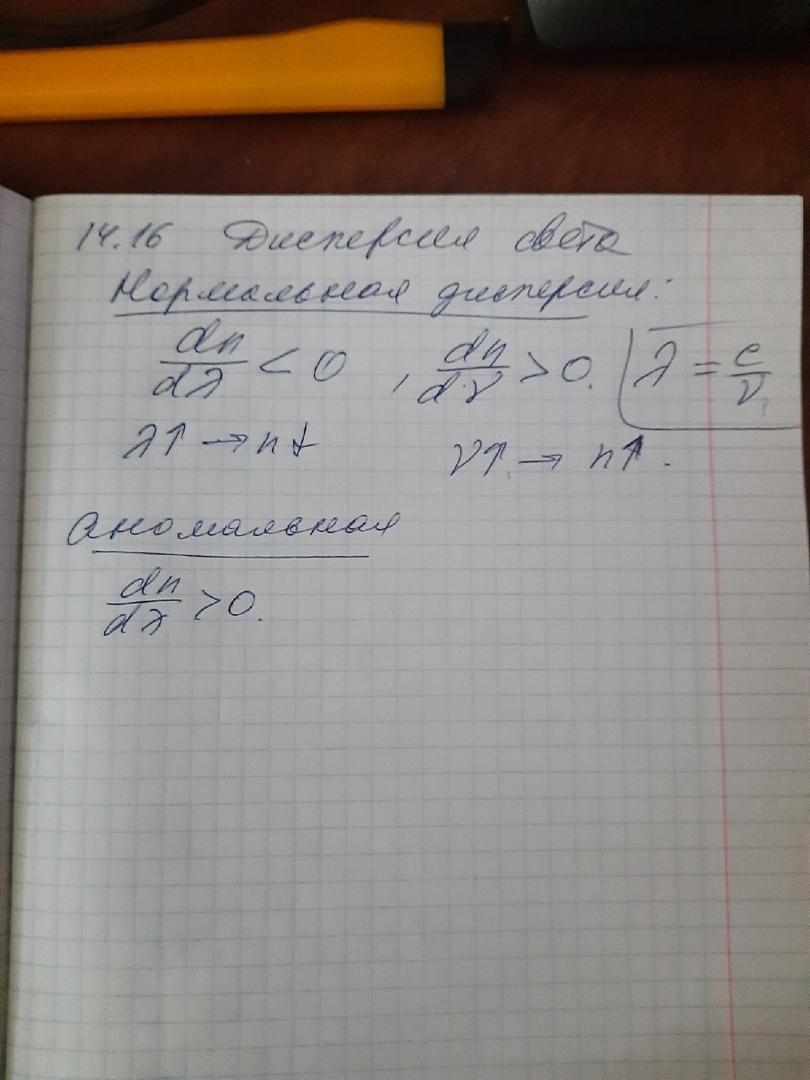 14.16 Дисперсия света
Нормальная дисперсия:
dn/dλ < 0, dn/dν > 0. λ = c/ν
λ↑ → n↓ ν↑ → n↑.
Аномальная
dn/dλ > 0.